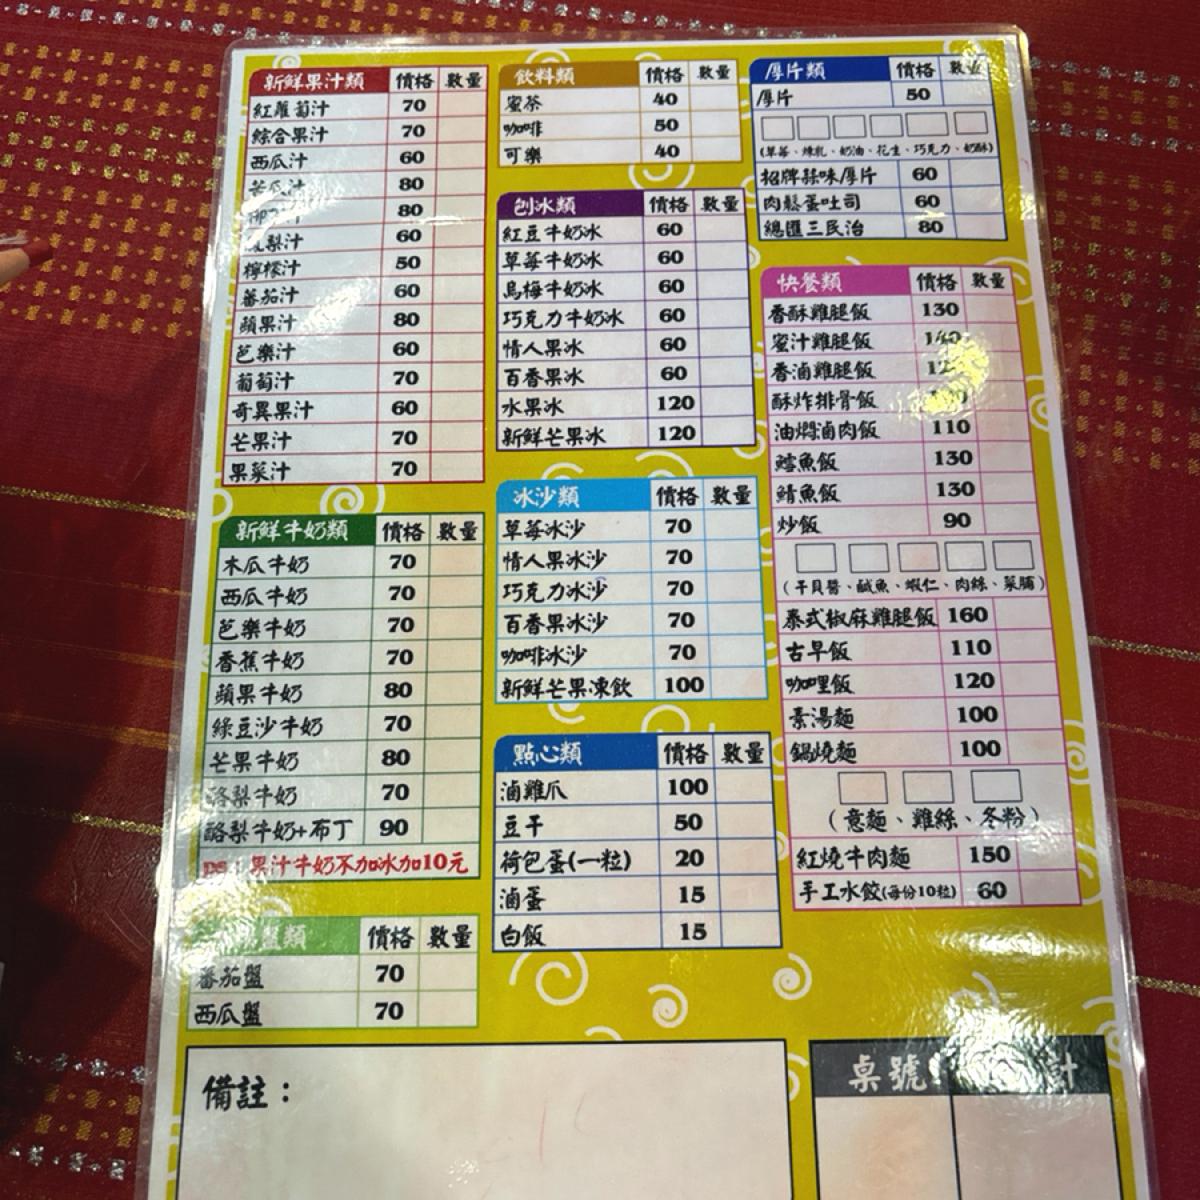 新鮮果汁類 價格 數量
紅蘿蔔汁 70
綜合果汁 70
西瓜汁 60
苦瓜汁 80
80
梨汁 60
檸檬汁 50
蕃茄汁 60
蘋果汁 80
芭樂汁 60
葡萄汁 70
奇異果汁 60
芒果汁 70
果菜汁 70
新鮮牛奶類 價格 數量
木瓜牛奶 70
西瓜牛奶 70
芭樂牛奶 70
香蕉牛奶 70
蘋果牛奶 80
綠豆沙牛奶 70
芒果牛奶 80
酪梨牛奶 70
酪梨牛奶+布丁 90
果汁牛奶不加冰加10元
盤類 價格 數量
蕃茄盤 70
西瓜盤 70
飲料類 價格 數量
蜜茶 40
咖啡 50
可樂 40
刨冰類 價格 數量
紅豆牛奶冰 60
草莓牛奶冰 60
烏梅牛奶冰 60
巧克力牛奶冰 60
情人果冰 60
百香果冰 60
水果冰 120
新鮮芒果冰 120
冰沙類 價格 數量
草莓冰沙 70
情人果冰沙 70
巧克力冰沙 70
百香果冰沙 70
咖啡冰沙 70
新鮮芒果凍飲 100
點心類 價格 數量
滷雞爪 100
豆干 50
荷包蛋(一粒) 20
滷蛋 15
白飯 15
厚片類 價格 數量
厚片 50
(草莓、煉乳、奶油、花生、巧克力、奶酥)
招牌蒜味厚片 60
肉鬆蛋吐司 60
總匯三民治 80
快餐類 價格 數量
香酥雞腿飯 130
蜜汁雞腿飯
香滷雞腿飯
酥炸排骨飯
油燜滷肉飯 110
鱈魚飯 130
鯖魚飯 130
炒飯 90
(干貝醬、鹹魚、蝦仁、肉絲、菜脯)
泰式椒麻雞腿飯 160
古早飯 110
咖哩飯 120
素湯麵 100
鍋燒麵 100
(意麵、雞絲、冬粉)
紅燒牛肉麵 150
手工水餃(每份10粒) 60
備註：
桌號 計